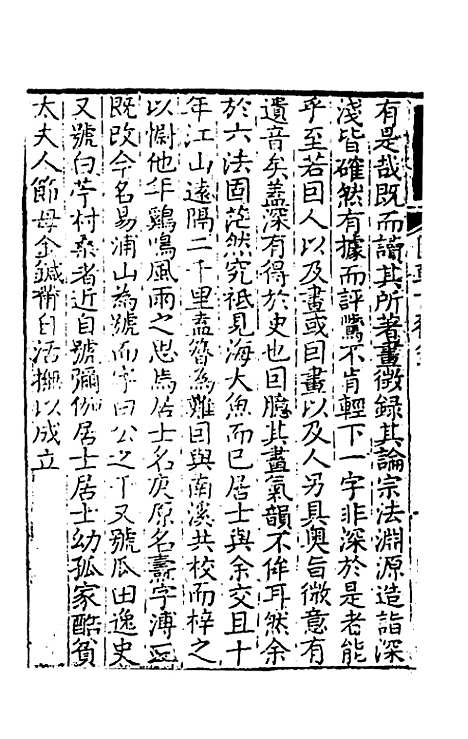 有是哉既而讀其所著畫徵録其論宗法淵源造詣深
淺皆確然有據而評騭不肯輕下一字非深於是者能
乎至若因人以及畫或因畫以及人另具奥旨微意有
遺音矣蓋深有得於史也因臆其畫氣韻不侔耳然余
於六法固茫然究祗見海大魚而已居士與余交且十
年江山遠隔二千里盍簪為難因與南溪共校而梓之
以慰他年鷄鳴風雨之思焉居士名庚原名燾字溥三
既改今名易浦山為號而字曰公之干又號瓜田逸史
又號白苧村桑者近自號彌伽居士居士幼孤家酷貧
太夫人節母金鍼黹自活撫以成立